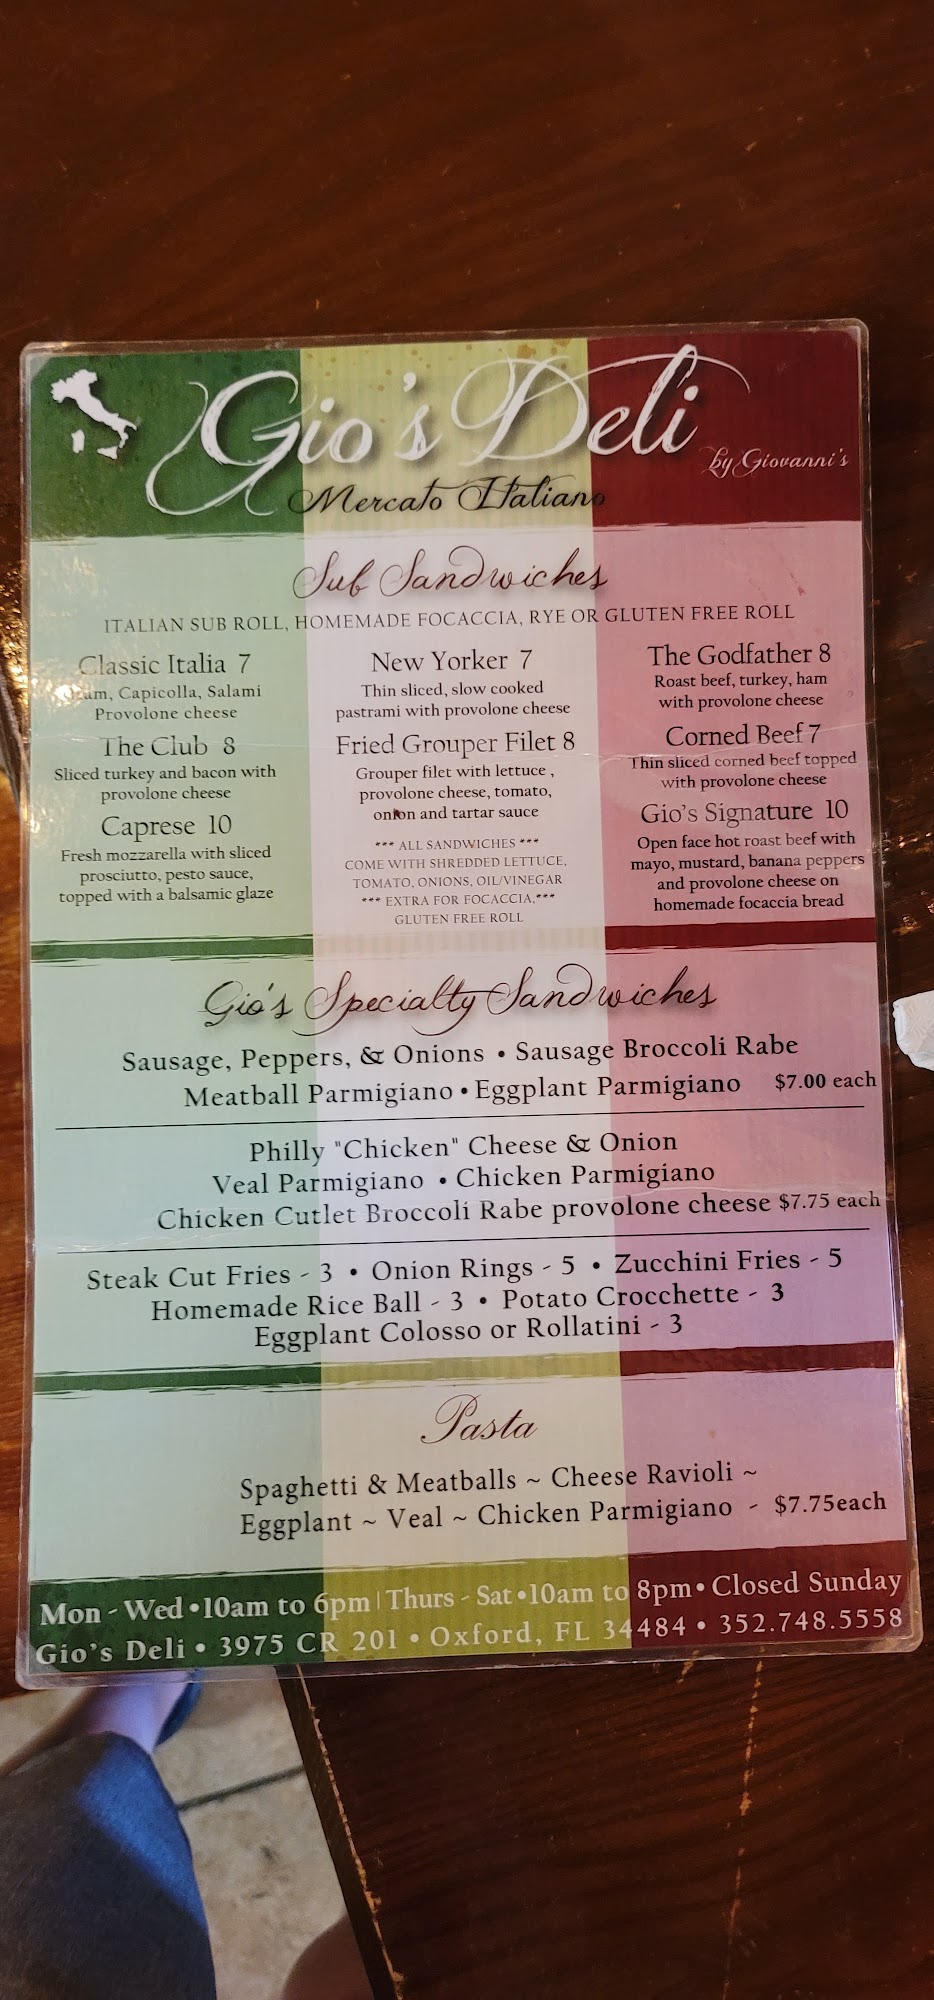 Gio's Deli
by Giovanni's
Mercato Italiano
Sub Sandwiches
ITALIAN SUB ROLL, HOMEMADE FOCACCIA, RYE OR GLUTEN FREE ROLL
Classic Italia 7
Capicolla, Salami
Provolone cheese
The Club 8
Sliced turkey and bacon with
provolone cheese
Caprese 10
Fresh mozzarella with sliced
prosciutto, pesto sauce,
topped with a balsamic glaze
New Yorker 7
Thin sliced, slow cooked
pastrami with provolone cheese
Fried Grouper Filet 8
Grouper filet with lettuce ,
provolone cheese, tomato,
onion and tartar sauce
*** ALL SANDWICHES ***
COME WITH SHREDDED LETTUCE,
TOMATO, ONIONS, OIL/VINEGAR
*** EXTRA FOR FOCACCIA,***
GLUTEN FREE ROLL
The Godfather 8
Roast beef, turkey, ham
with provolone cheese
Corned Beef 7
Thin sliced corned beef topped
with provolone cheese
Gio's Signature 10
Open face hot roast beef with
mayo, mustard, banana peppers
and provolone cheese on
homemade focaccia bread
Gio's Specialty Sandwiches
Sausage, Peppers, & Onions • Sausage Broccoli Rabe
Meatball Parmigiano • Eggplant Parmigiano $7.00 each
Philly "Chicken" Cheese & Onion
Veal Parmigiano • Chicken Parmigiano
Chicken Cutlet Broccoli Rabe provolone cheese $7.75 each
Steak Cut Fries - 3 • Onion Rings - 5 • Zucchini Fries - 5
Homemade Rice Ball - 3 • Potato Crocchette - 3
Eggplant Colosso or Rollatini - 3
Pasta
Spaghetti & Meatballs ~ Cheese Ravioli ~
Eggplant ~ Veal ~ Chicken Parmigiano - $7.75each
Mon - Wed •10am to 6pm | Thurs - Sat •10am to 8pm• Closed Sunday
Gio's Deli • 3975 CR 201 • Oxford, FL 34484 • 352.748.5558